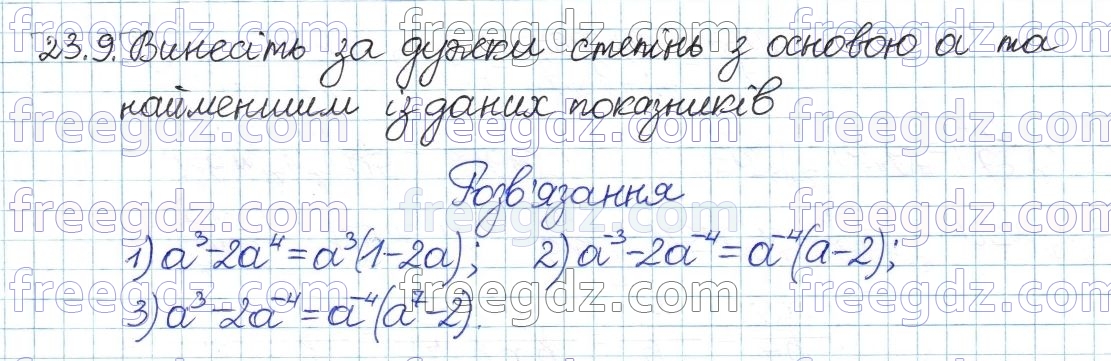 23.9. Винесіть за дужки степінь з основою a та
найменшим із даних показників
Розв'язання
1) a³-2a⁴=a³(1-2a); 2) a⁻³-2a⁻⁴=a⁻⁴(a-2);
3) a³-2a⁻⁴=a⁻⁴(a⁷-2).
freegdz.com